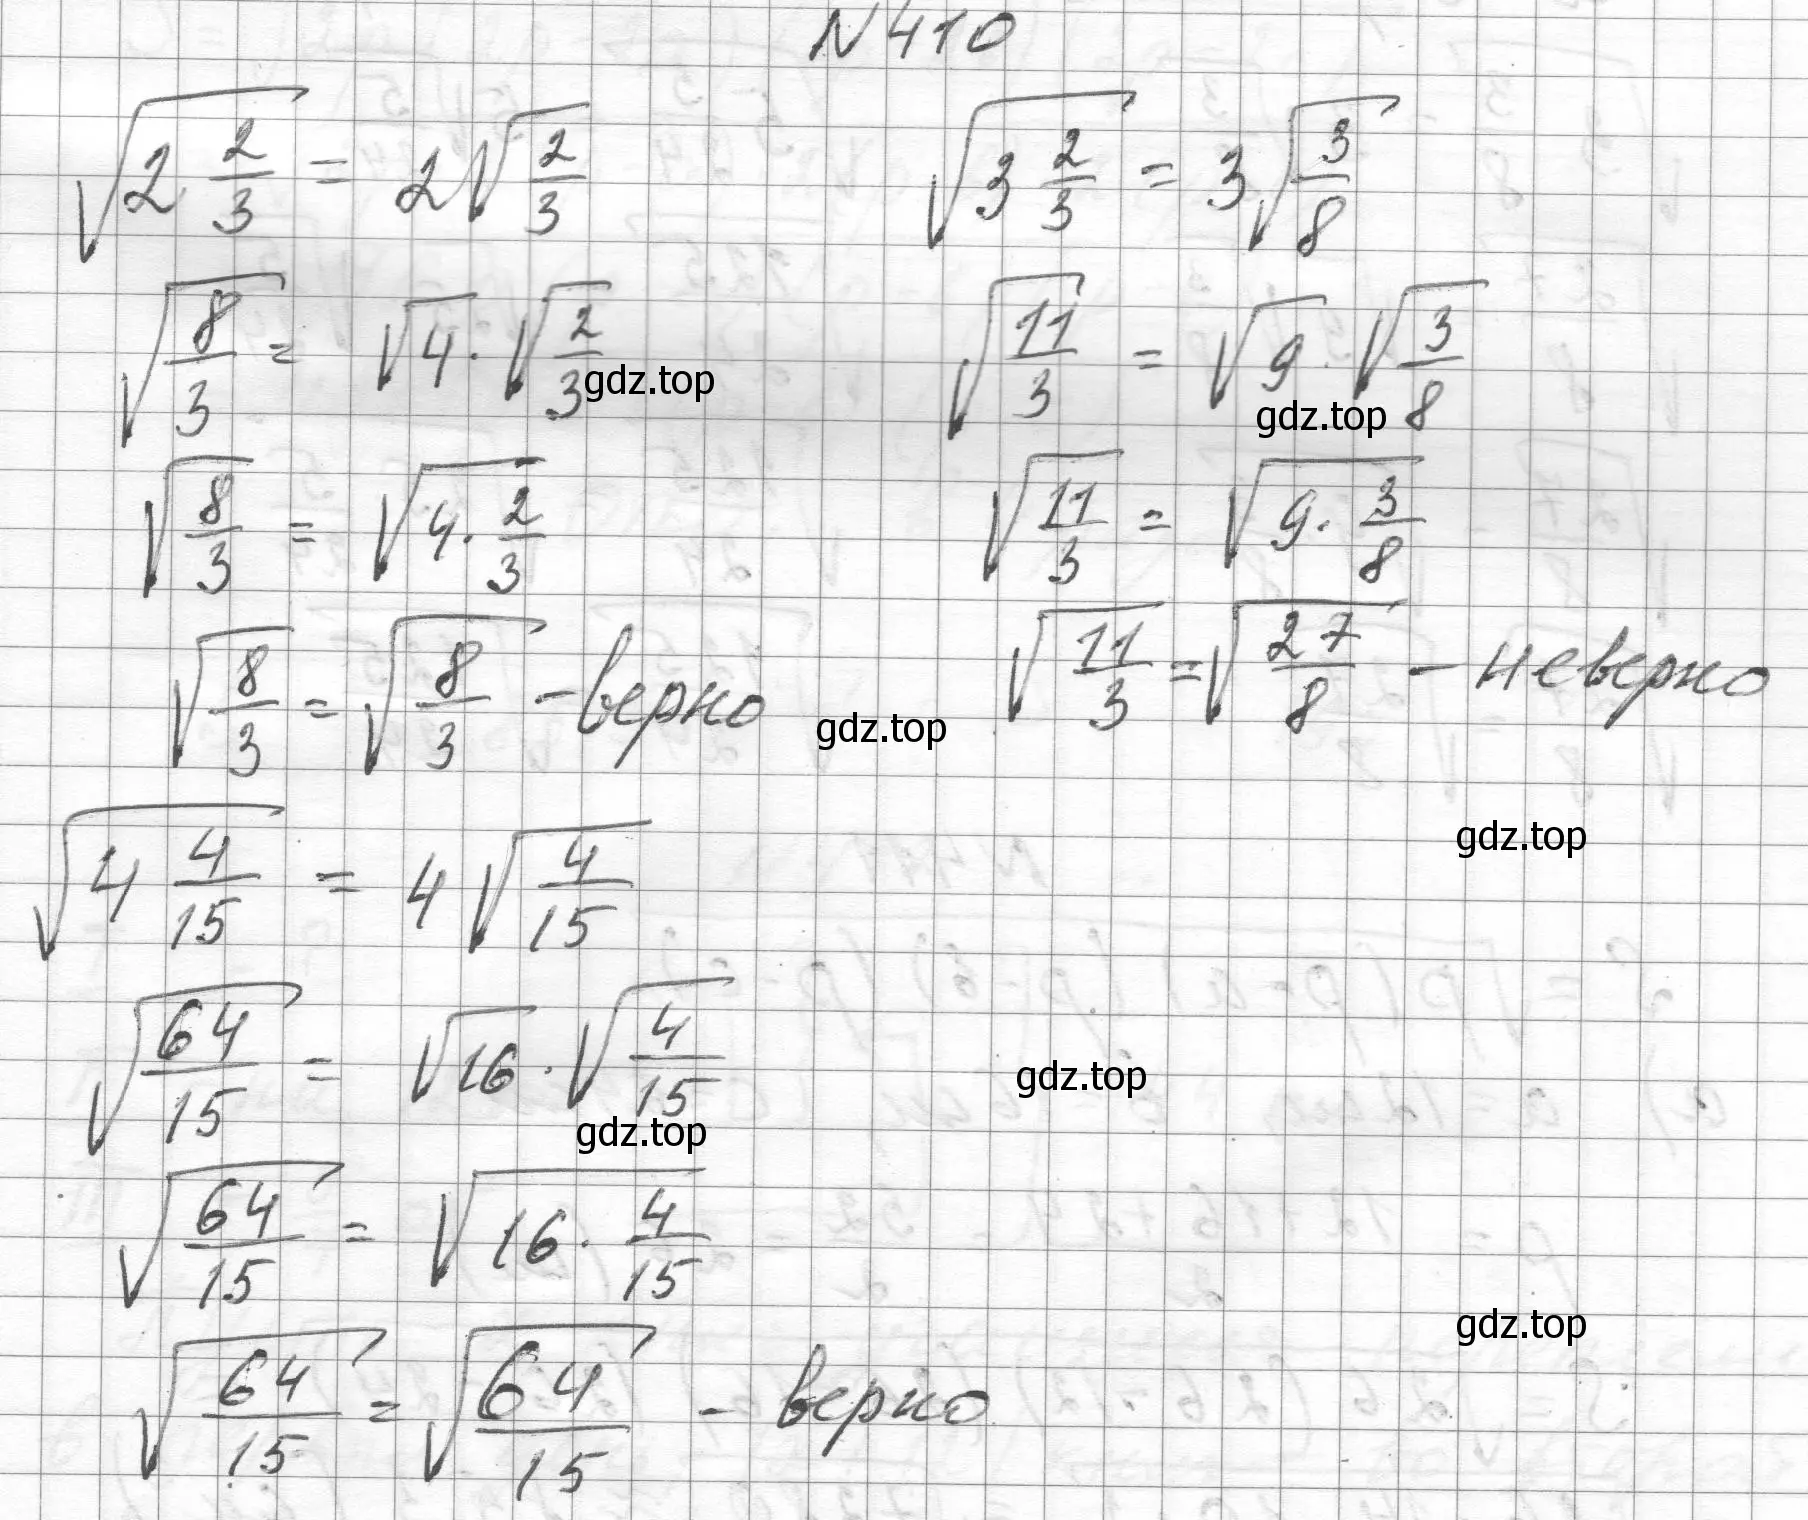 N 410
√(2 2/3) = 2√(2/3)
√(8/3) = √4 · √(2/3)
gdz.top
√(8/3) = √(4 · 2/3)
√(8/3) = √(8/3) – верно
gdz.top
√(3 2/3) = 3√(3/8)
√(11/3) = √9 · √(3/8)
gdz.top
√(11/3) = √(9 · 3/8)
√(11/3) = √(27/8) – неверно
gdz.top
√(4 4/15) = 4√(4/15)
√(64/15) = √16 · √(4/15)
gdz.top
gdz.top
√(64/15) = √(16 · 4/15)
gdz.top
√(64/15) = √(64/15) – верно